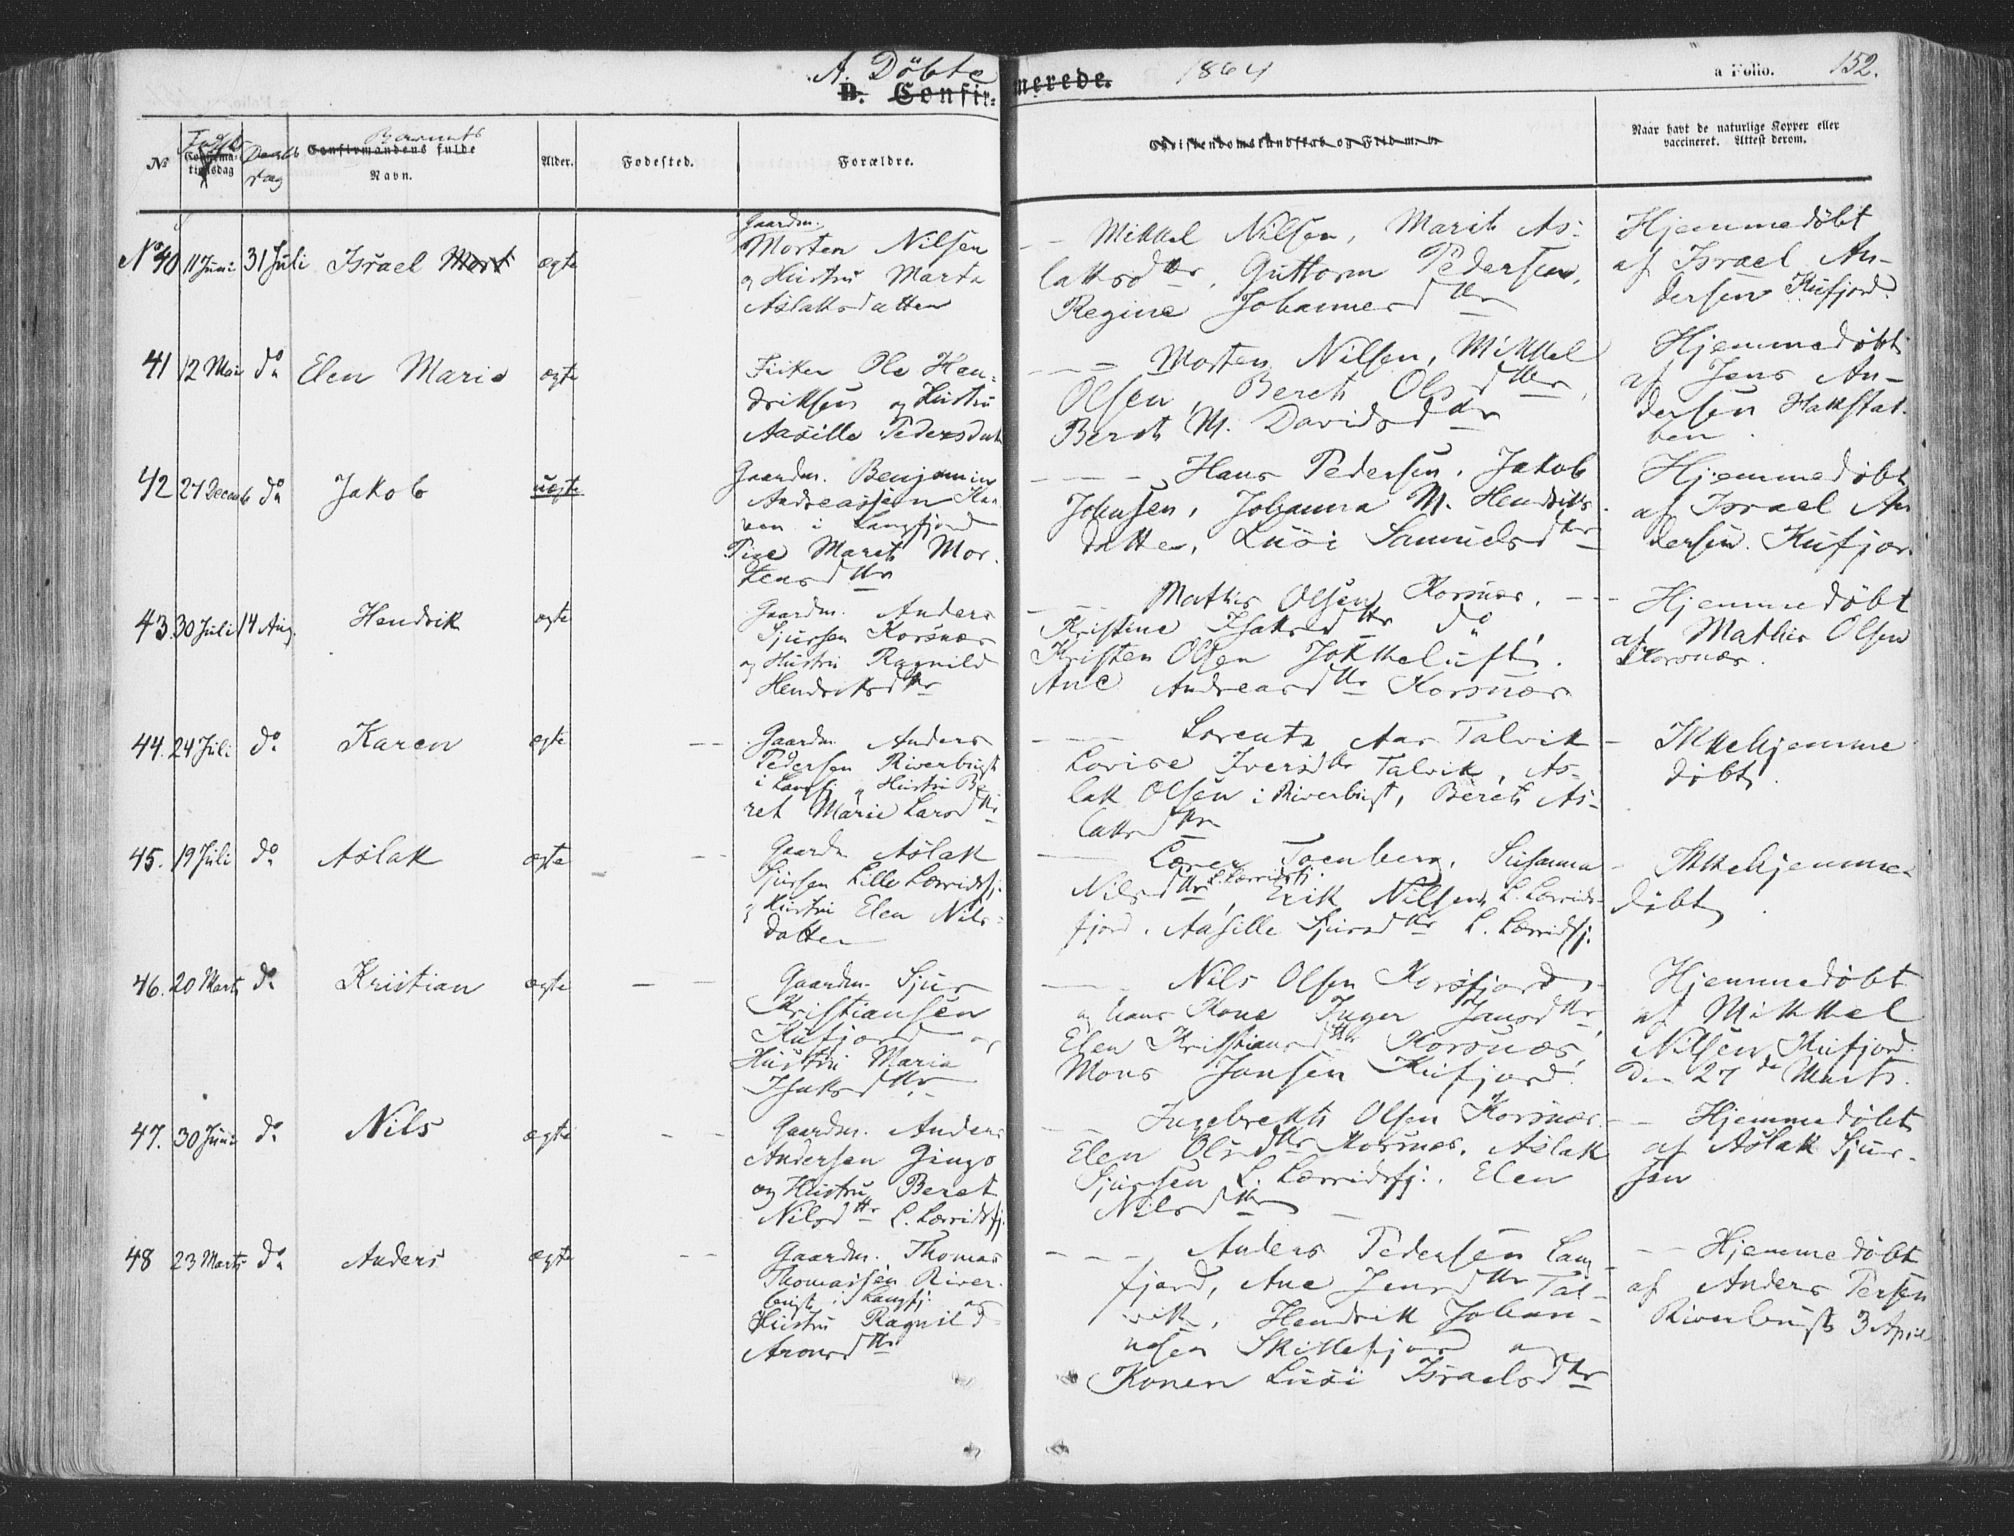 A. Döbte
B. Confirmerede.
1864
a Folio. 152.
No
Confirmationsdag
Daabsdag
Barnets
Confirmandens fulde
Navn.
Alder.
Fødested.
Forældre.
Christendomskundskab og Fridm.
Naar havt de naturlige Kopper eller
vaccineret. Attest derom.
No 40 11 Juni 31 Juli Israel Mort ægte
Gaardm.
Morten Nilsen
og Hustru Marta
Aslaksdatter
Mikkel Nilsen, Marit As-
laksdttr, Guttorm Pedersen,
Regine Johannesdttr
Hjemmedøbt
af Israel An-
dersen Kufjord.
41 12 Mai do Elen Marie ægte
Fisker Ole Hen-
driksen og Hustru
Aasille Pedersdatt
Morten Nilsen, Mikkel
Olsen, Beret Olsdttr,
Beret M. Davidsdttr
Hjemmedøbt
af Jens An-
dersen Hakstab-
ben.
42 27 Decemb do Jakob uægte
Gaardm. Benjamin
Andreassen
i Langfjord
Pige Marit Mor-
tensdttr
Hans Pedersen, Jakob
Johnsen, Johanna M. Hendriks-
datter, Lusi Samuelsdttr
Hjemmedøbt
af Israel An
dersen Kufjor
43 30 Juli 14 Aug. Hendrik ægte
Gaardm. Anders
Sjursen Korsnæs
og Hustru Ragnild
Hendriksdttr
Mathis Olsen Korsnæs,
Kristine Isaksdttr do,
Kristen Olsen Jøkkeluft.
Ane Andreasdttr Korsnæs
Hjemmedøbt
af Mathis Olsen
Korsnæs.
44. 24 Juli do Karen ægte
Gaardm Anders
Pedersen Riverbugt
i Langfj og Hustru Be
ret Marie Larsdttr
Lorents Aas Talvik
Lovise Iversdttr Talvik, As-
lak Olsen i Riverbugt, Beret As-
laksdttr
Ikkehjemme
døbt.
45. 19 Juli do Aslak ægte
Gaardm Aslak
Sjursen Lille Lerridsfj.
og Hustru Elen Nils-
datter
Lærer Toenberg, Susanna
Nilsdttr L. Lerridsfj., Erik Nilsen L. Lerrids-
fjord. Aasille Sjursdttr L. Lerridsfj.
Ikkehjemme-
døbt.
46. 20 Marts do Kristian ægte
Gaardm. Sjur
Kristiansen
Kufjord og
Hustru Maria
Isaksdttr.
Nils Olsen Korsfjord
og hans Kone Inger Jansdttr,
Elen Kristiansdttr Korsnæs,
Mons Jansen Kufjord.
Hjemmedøbt
af Mikkel
Nilsen, Kufjord.
Den 27de Marts.
47. 30 Juni do Nils ægte
Gaardm. Anders
Andersen Gingo
og Hustru Beret
Nilsdttr L. Lerridsfj.
Ingebrekt Olsen Korsnæs.
Elen Olsdttr Korsnæs, Aslak
Sjursen L. Lerridsfj., Elen
Nilsdttr
Hjemmedøbt
af Aslak Sjur-
sen
48 23 Marts do Anders ægte
Gaardm. Thomas
Thomassen River-
bugt i Langfj. og
Hustru Ragnild
Aronsdttr
Anders Pedersen Lang
fjord, Ane Jensdttr Tal-
vik, Hendrik Johan-
nesen Skillefjord og
Konen Lusi Israelsdttr
Hjemmedøbt
af Anders Persen
Riverbugt 3 April